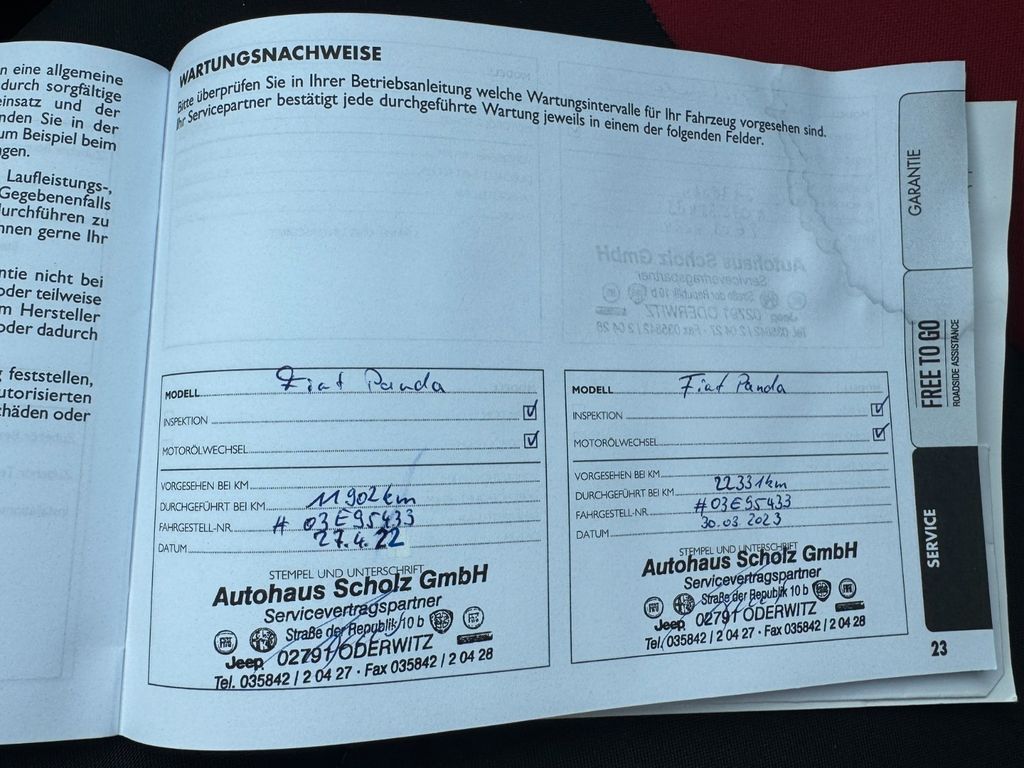 n eine allgemeine
durch sorgfältige
einsatz und der
nden Sie in der
um Beispiel beim
gen.
Laufleistungs-,
Gegebenenfalls
durchführen zu
nnen gerne Ihr
ntie nicht bei
oder teilweise
m Hersteller
oder dadurch
g feststellen,
utorisierten
chäden oder
WARTUNGSNACHWEISE
Bitte überprüfen Sie in Ihrer Betriebsanleitung welche Wartungsintervalle für Ihr Fahrzeug vorgesehen sind.
Ihr Servicepartner bestätigt jede durchgeführte Wartung jeweils in einem der folgenden Felder.
MODELL Fiat Panda
INSPEKTION
MOTORÖLWECHSEL
VORGESEHEN BEI KM
DURCHGEFÜHRT BEI KM 11902 km
FAHRGESTELL-NR. # 03E95433
DATUM 27.4.22
STEMPEL UND UNTERSCHRIFT
Autohaus Scholz GmbH
Servicevertragspartner
Straße der Republik 10 b
Jeep 02791 ODERWITZ
Tel. 035842 / 2 04 27 · Fax 035842 / 2 04 28
MODELL Fiat Panda
INSPEKTION
MOTORÖLWECHSEL
VORGESEHEN BEI KM
DURCHGEFÜHRT BEI KM 22331km
FAHRGESTELL-NR. # 03E95433
DATUM 30.03.2023
STEMPEL UND UNTERSCHRIFT
Autohaus Scholz GmbH
Servicevertragspartner
Straße der Republik 10 b
Jeep 02791 ODERWITZ
Tel. 035842 / 2 04 27 · Fax 035842 / 2 04 28
GARANTIE
FREE TO GO
ROADSIDE ASSISTANCE
SERVICE
23